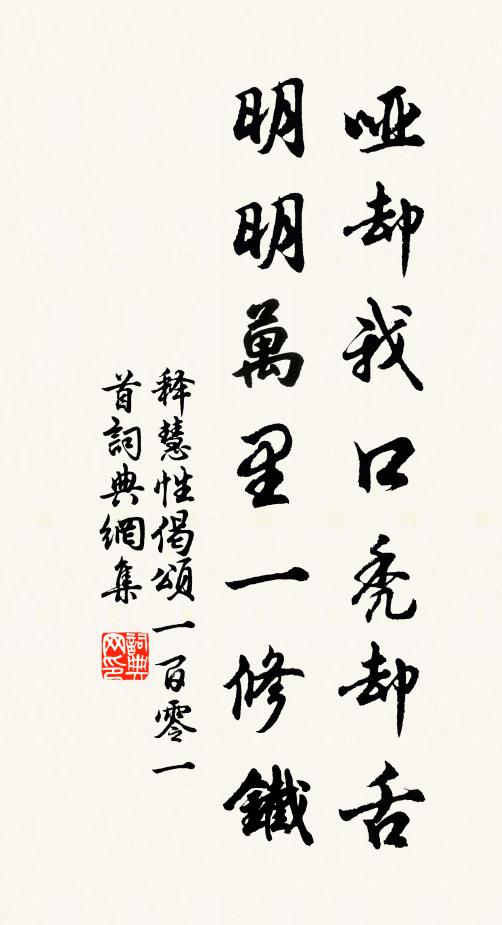 啞却我口禿却舌
明明萬里一修鐵
释慧性偈頌一百零一
首詞典網集
詞典
网印